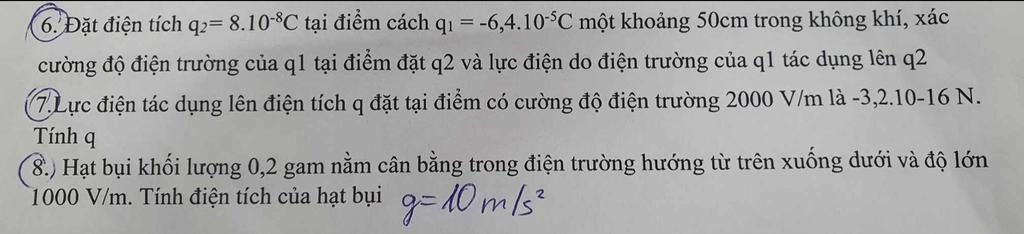 6. Đặt điện tích q₂= 8.10⁻⁸C tại điểm cách q₁ = -6,4.10⁻⁵C một khoảng 50cm trong không khí, xác
cường độ điện trường của q1 tại điểm đặt q2 và lực điện do điện trường của q1 tác dụng lên q2
7.Lực điện tác dụng lên điện tích q đặt tại điểm có cường độ điện trường 2000 V/m là -3,2.10-16 N.
Tính q
8. Hạt bụi khối lượng 0,2 gam nằm cân bằng trong điện trường hướng từ trên xuống dưới và độ lớn
1000 V/m. Tính điện tích của hạt bụi g=10 m/s²